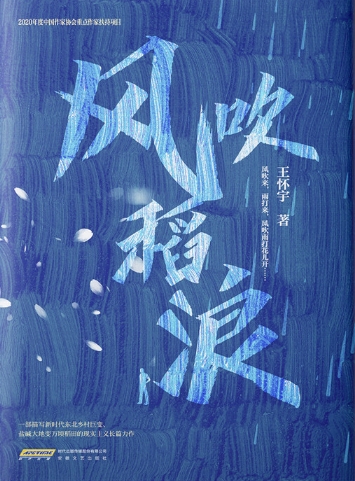 2020年度中国作家协会重点作家扶持项目
风吹稻浪
王怀宇 著
风吹来，雨打来，风吹雨打花儿开……
一部描写新时代东北乡村巨变、
盐碱大地变万顷稻田的现实主义长篇力作
时代出版传媒股份有限公司
安徽文艺出版社